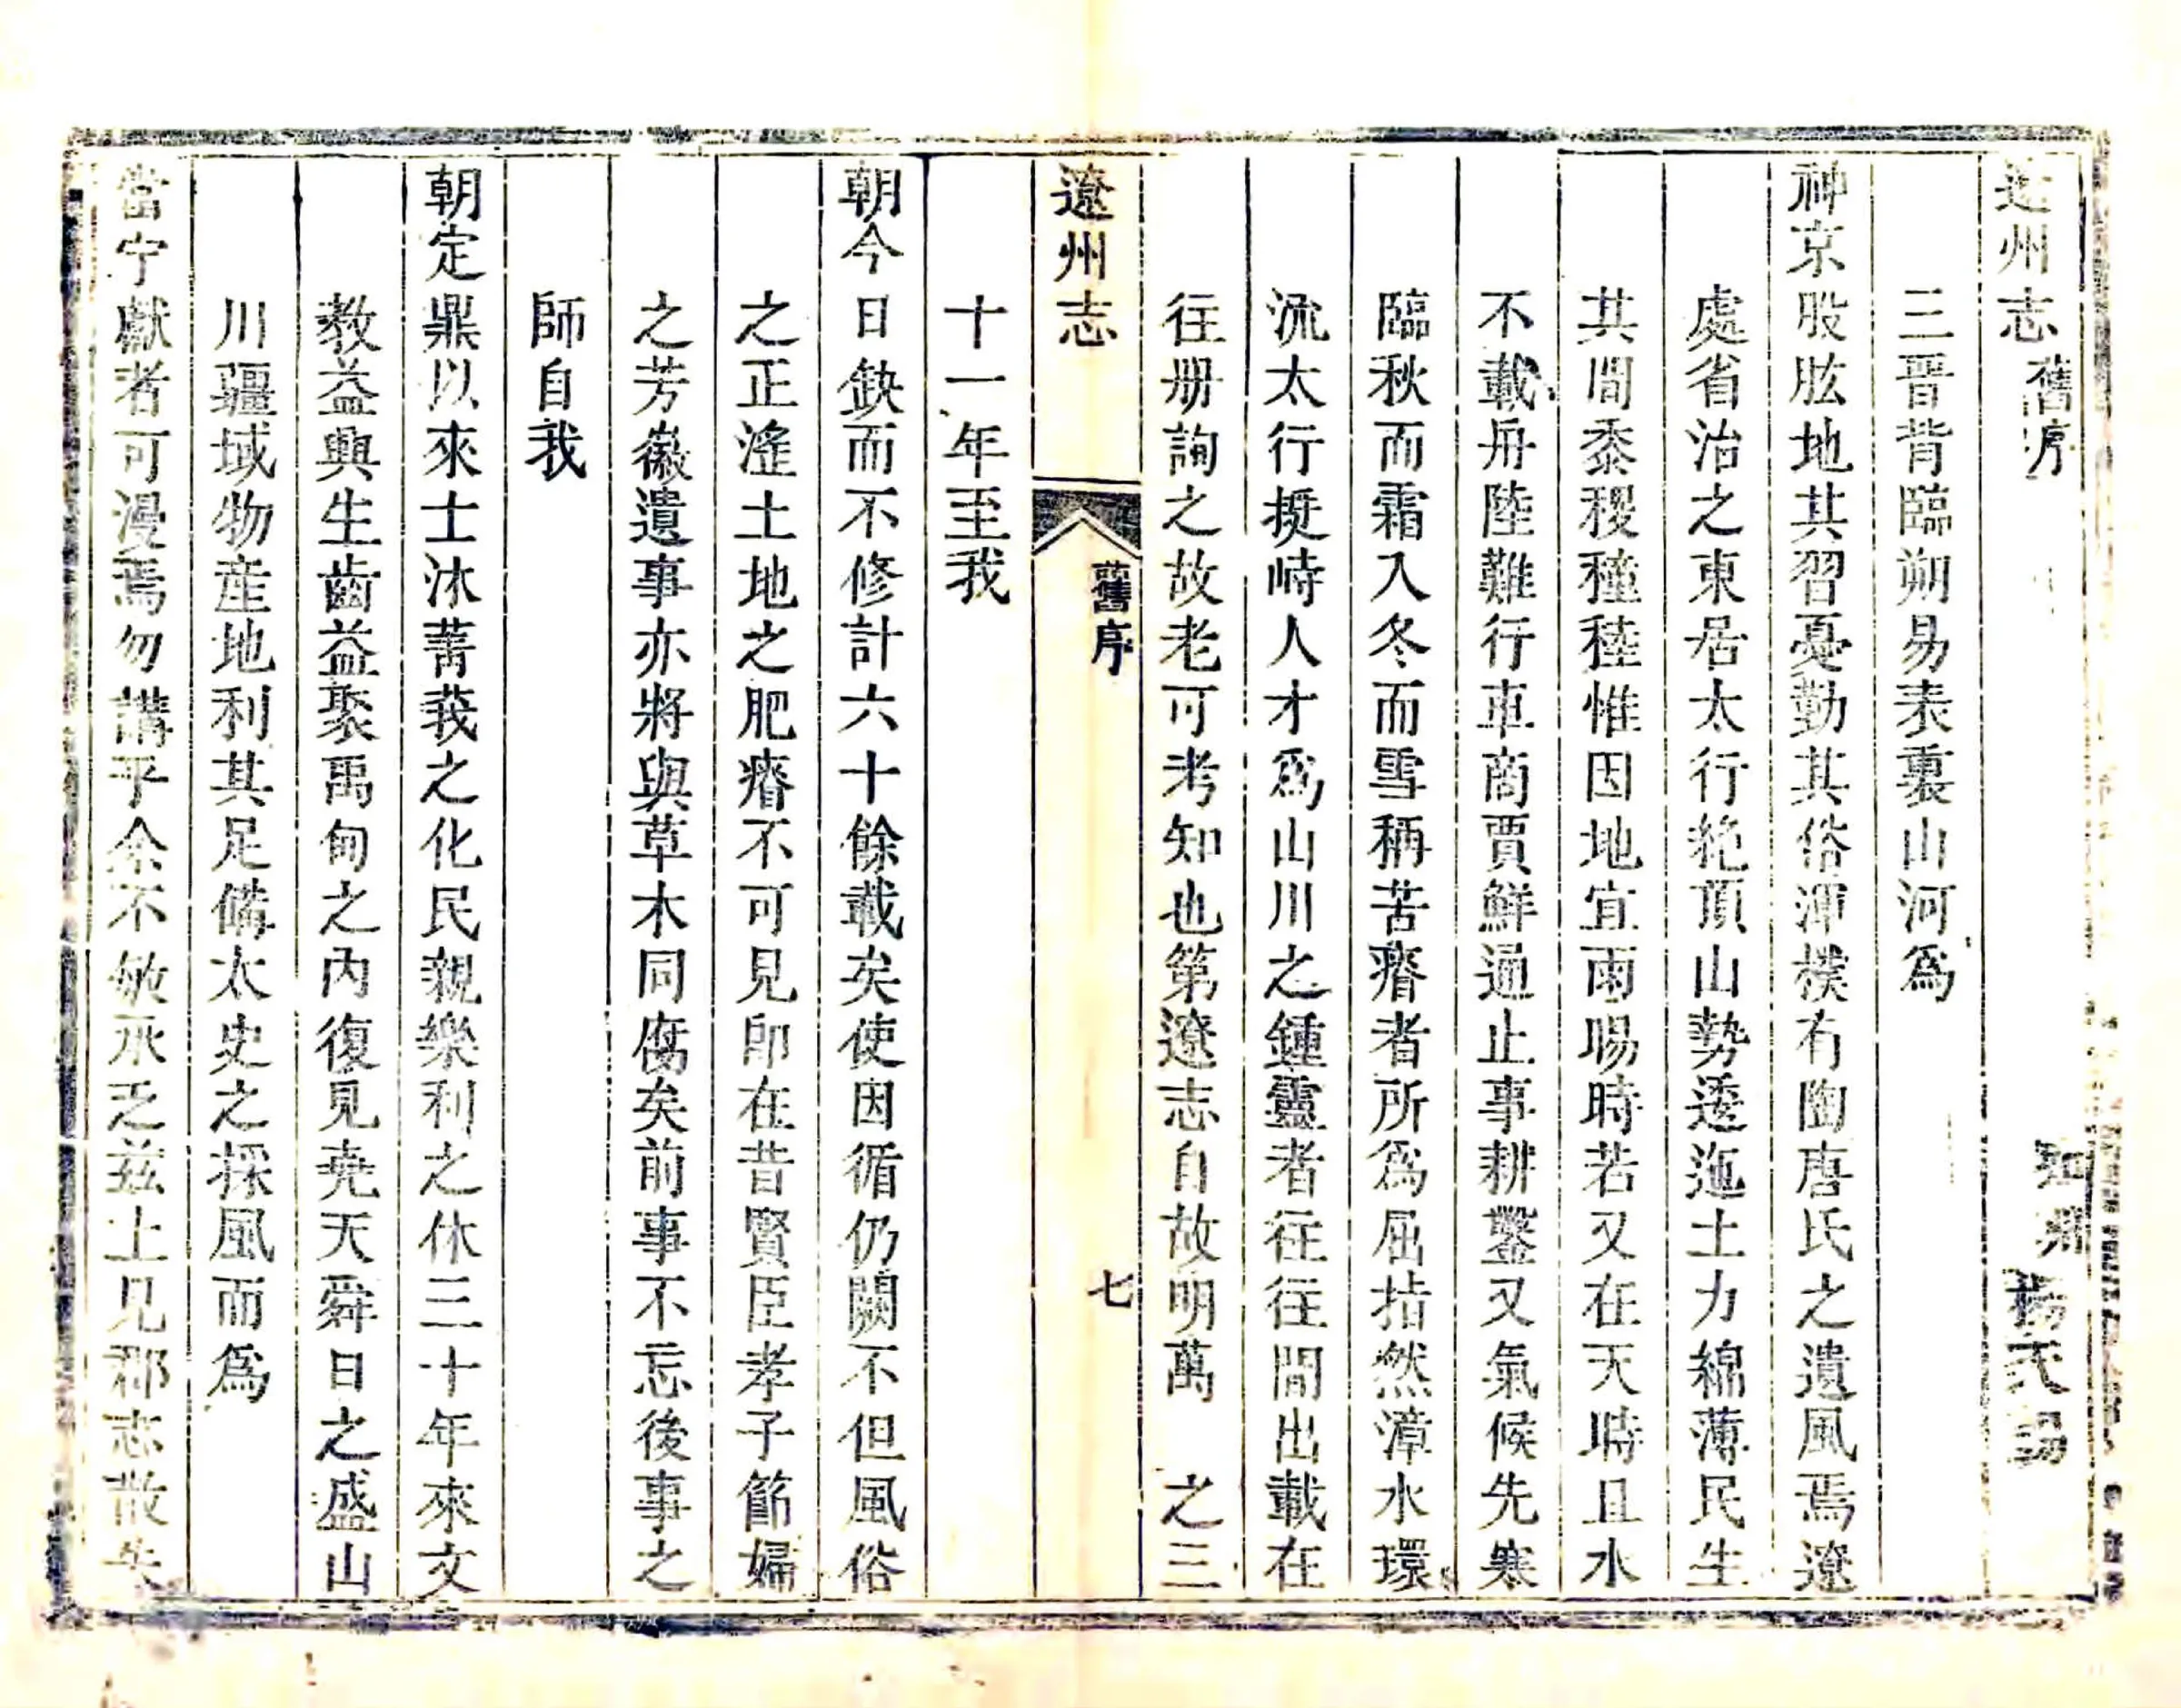 遼州志 舊序 知州 楊天錫
三晋背臨朔易表裏山河爲
神京股肱地其習憂勤其俗渾樸有陶唐氏之遺風焉遼
處省治之東居太行絶頂山勢逶迤土力綿薄民生
其間黍稷穜稑惟因地宜雨暘時若又在天時且水
不載舟陸難行車商賈鮮通止事耕鑿又氣候先寒
臨秋而霜入冬而雪稱苦瘠者所爲屈拈然漳水環
流太行挺峙人才爲山川之鍾靈者往往間出載在
往册詢之故老可考知也第遼志自故明萬 之三
遼州志 舊序 七
十一年至我
朝今日缺而不修計六十餘載矣使因循仍闕不但風俗
之正滛土地之肥瘠不可見即在昔賢臣孝子節婦
之芳徽遺事亦將與草木同腐矣前事不忘後事之
師自我
朝定鼎以來士沐菁莪之化民親樂利之休三十年來文
教益興生齒益聚禹甸之內復見堯天舜日之盛山
川疆域物産地利其足備太史之採風而爲
當宁獻者可漫焉勿講乎余不敏承乏兹土見郡志散失